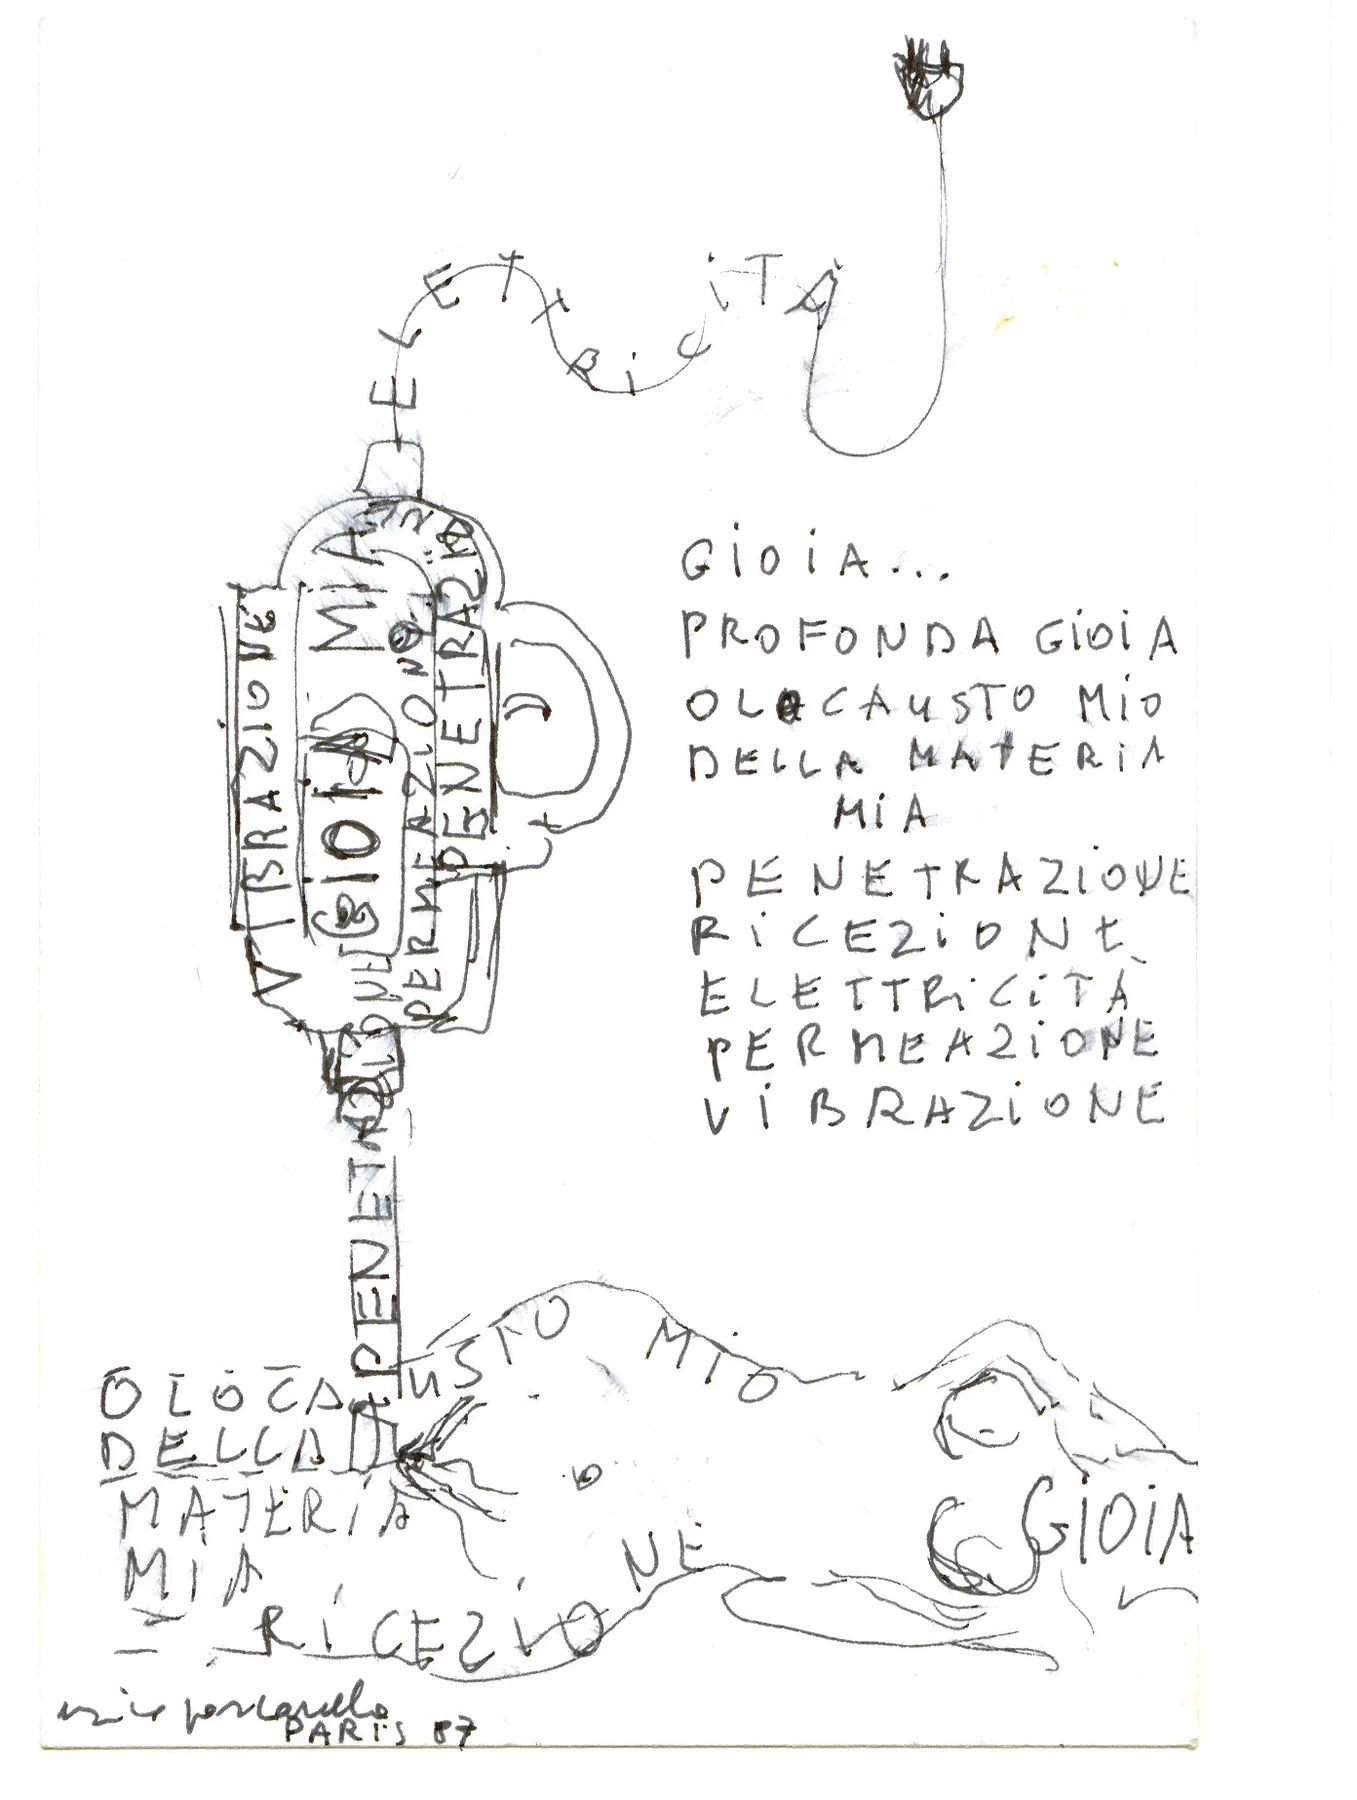 ELETTRiCiTÀ
GiOiA...
PROFONDA GiOiA
OLOCAUSTO MiO
DELLA MATERiA
MiA
PENETRAZiONE
RiCEZiONE
ELETTRiCiTÀ
PERMEAZiONE
ViBRAZiONE
VIBRAZIONE
GIOIA MIA
PERMEAZIONE
PENETRAZIONE
PENETRAZIONE
OLOCAUSTO MiO
DELLA
MATERiA
MiA
RiCEZiONE
GiOiA
PARiS 87